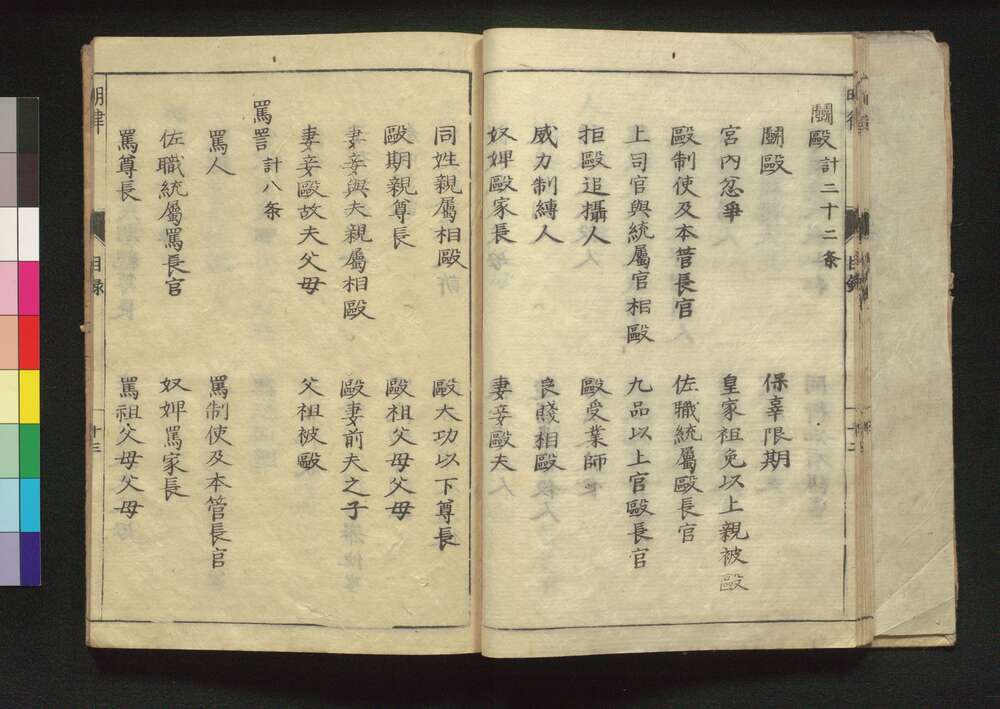 鬭毆 計二十二条
鬭毆 保辜限期
宮內忿爭 皇家袒免以上親被毆
毆制使及本管長官 佐職統屬毆長官
上司官與統屬官相毆 九品以上官毆長官
拒毆追攝人 毆受業師
威力制縛人 良賤相毆
奴婢毆家長 妻妾毆夫
同姓親屬相毆 毆大功以下尊長
毆期親尊長 毆祖父母父母
妻妾與夫親屬相毆 毆妻前夫之子
妻妾毆故夫父母 父祖被毆
罵詈 計八条
罵人 罵制使及本管長官
佐職統屬罵長官 奴婢罵家長
罵尊長 罵祖父母父母
明律 目录 十三